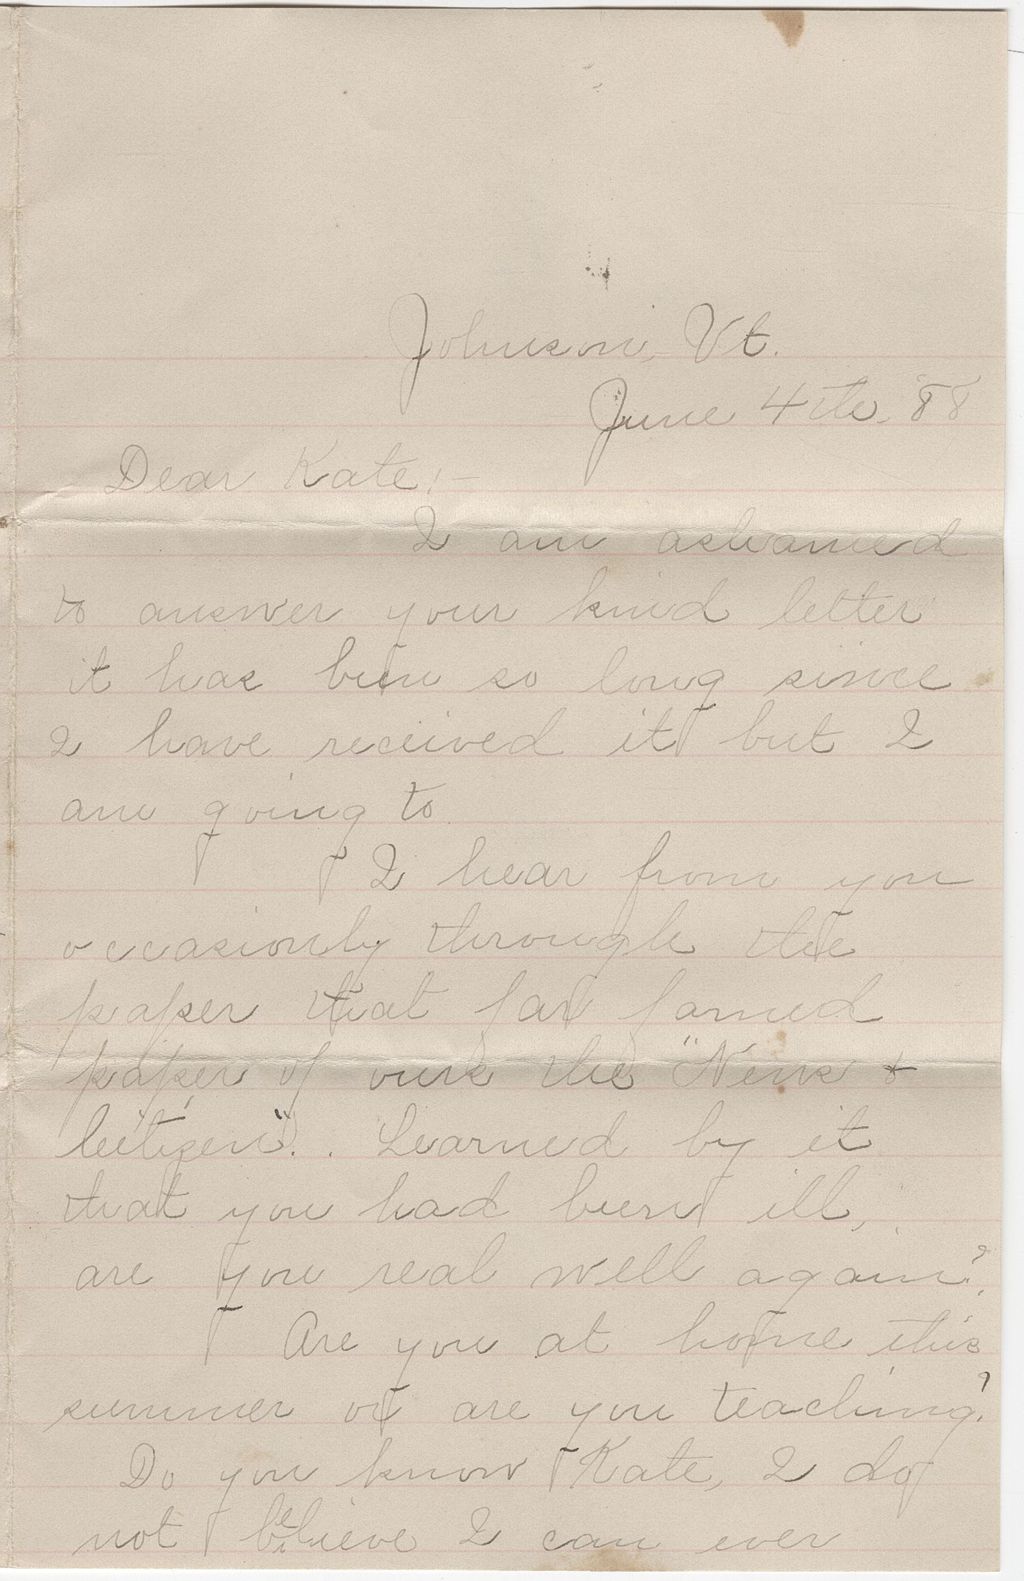 Johnson, Vt.
June 4th. '88
Dear Kate:-
I am ashamed
to answer your kind letter
it has been so long since
I have received it but I
am going to.
I hear from you
occasionly through the
paper that far famed
paper of ours the "News &
Citizen". Learned by it
that you had been ill,
are you real well again?
Are you at home this
summer or are you teaching?
Do you know Kate, I do
not believe I can ever